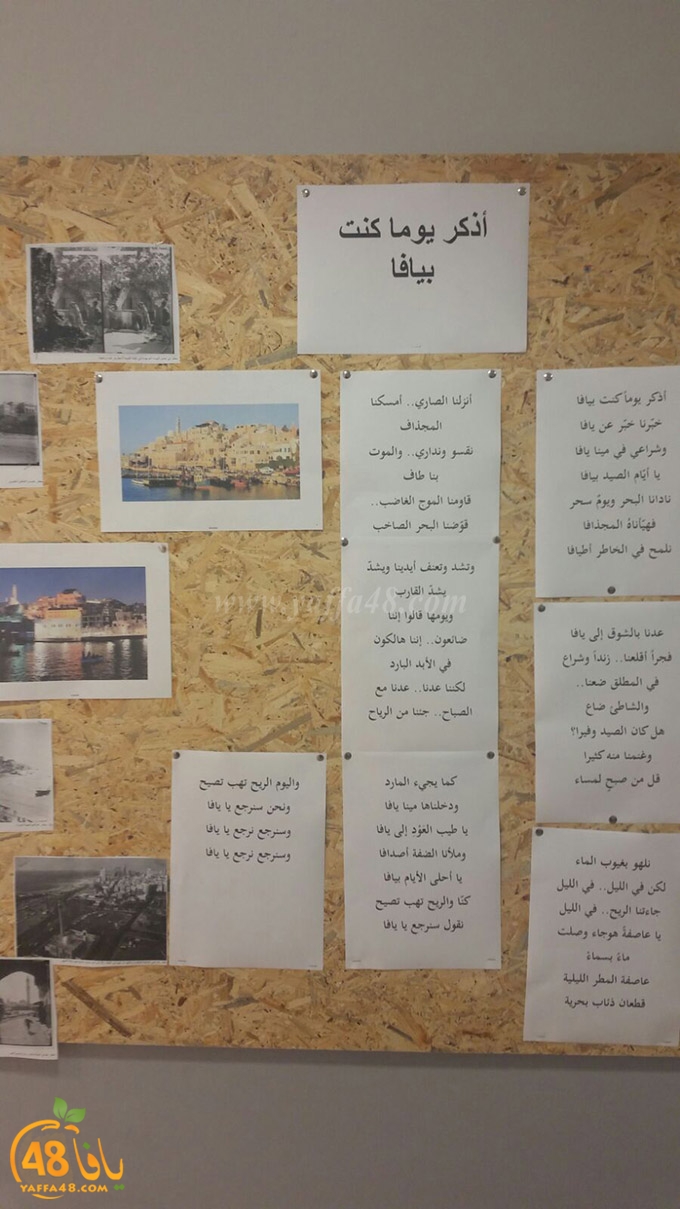 أذكر يوما كنت
بيافا
أذكر يوماً كنت بيافا
خبّرنا خبّر عن يافا
وشراعي في مينا يافا
يا أيّام الصيد بيافا
نادانا البحر ويومٌ سحر
فهيّأناهُ المجذافا
نلمح في الخاطر أطيافا
عدنا بالشوق إلى يافا
فجراً أقلعنا.. زنداً وشراع
في المطلق ضعنا..
والشاطئ ضاع
هل كان الصيد وفيرا؟
وغنمنا منه كثيرا
قل من صبحٍ لمساء
نلهو بغيوب الماء
لكن في الليل.. في الليل
جاءتنا الريح.. في الليل
يا عاصفةً هوجاء وصلت
ماءً بسماءْ
عاصفة المطر الليلية
قطعان ذئاب بحرية
أنزلنا الصاري.. أمسكنا
المجذاف
نقسو ونداري.. والموت
بنا طاف
قاومنا الموج الغاضب..
قوّضنا البحر الصاخب
وتشد وتعنف أيدينا ويشدّ
يشدّ القارب
ويومها قالوا إننا
ضائعون.. إننا هالكون
في الأبد البارد
لكننا عدنا.. عدنا مع
الصباح.. جئنا من الرياح
كما يجيء المارد
ودخلناها مينا يافا
يا طيب العَوْدِ إلى يافا
وملأنا الضفة أصدافا
يا أحلى الأيام بيافا
كنّا والريح تهب تصيح
نقول سنرجع يا يافا
واليوم الريح تهب تصيح
ونحن سنرجع يا يافا
وسنرجع نرجع يا يافا
وسنرجع نرجع يا يافا
www.yaffa48.com
يافا 48
YAFFA48.COM